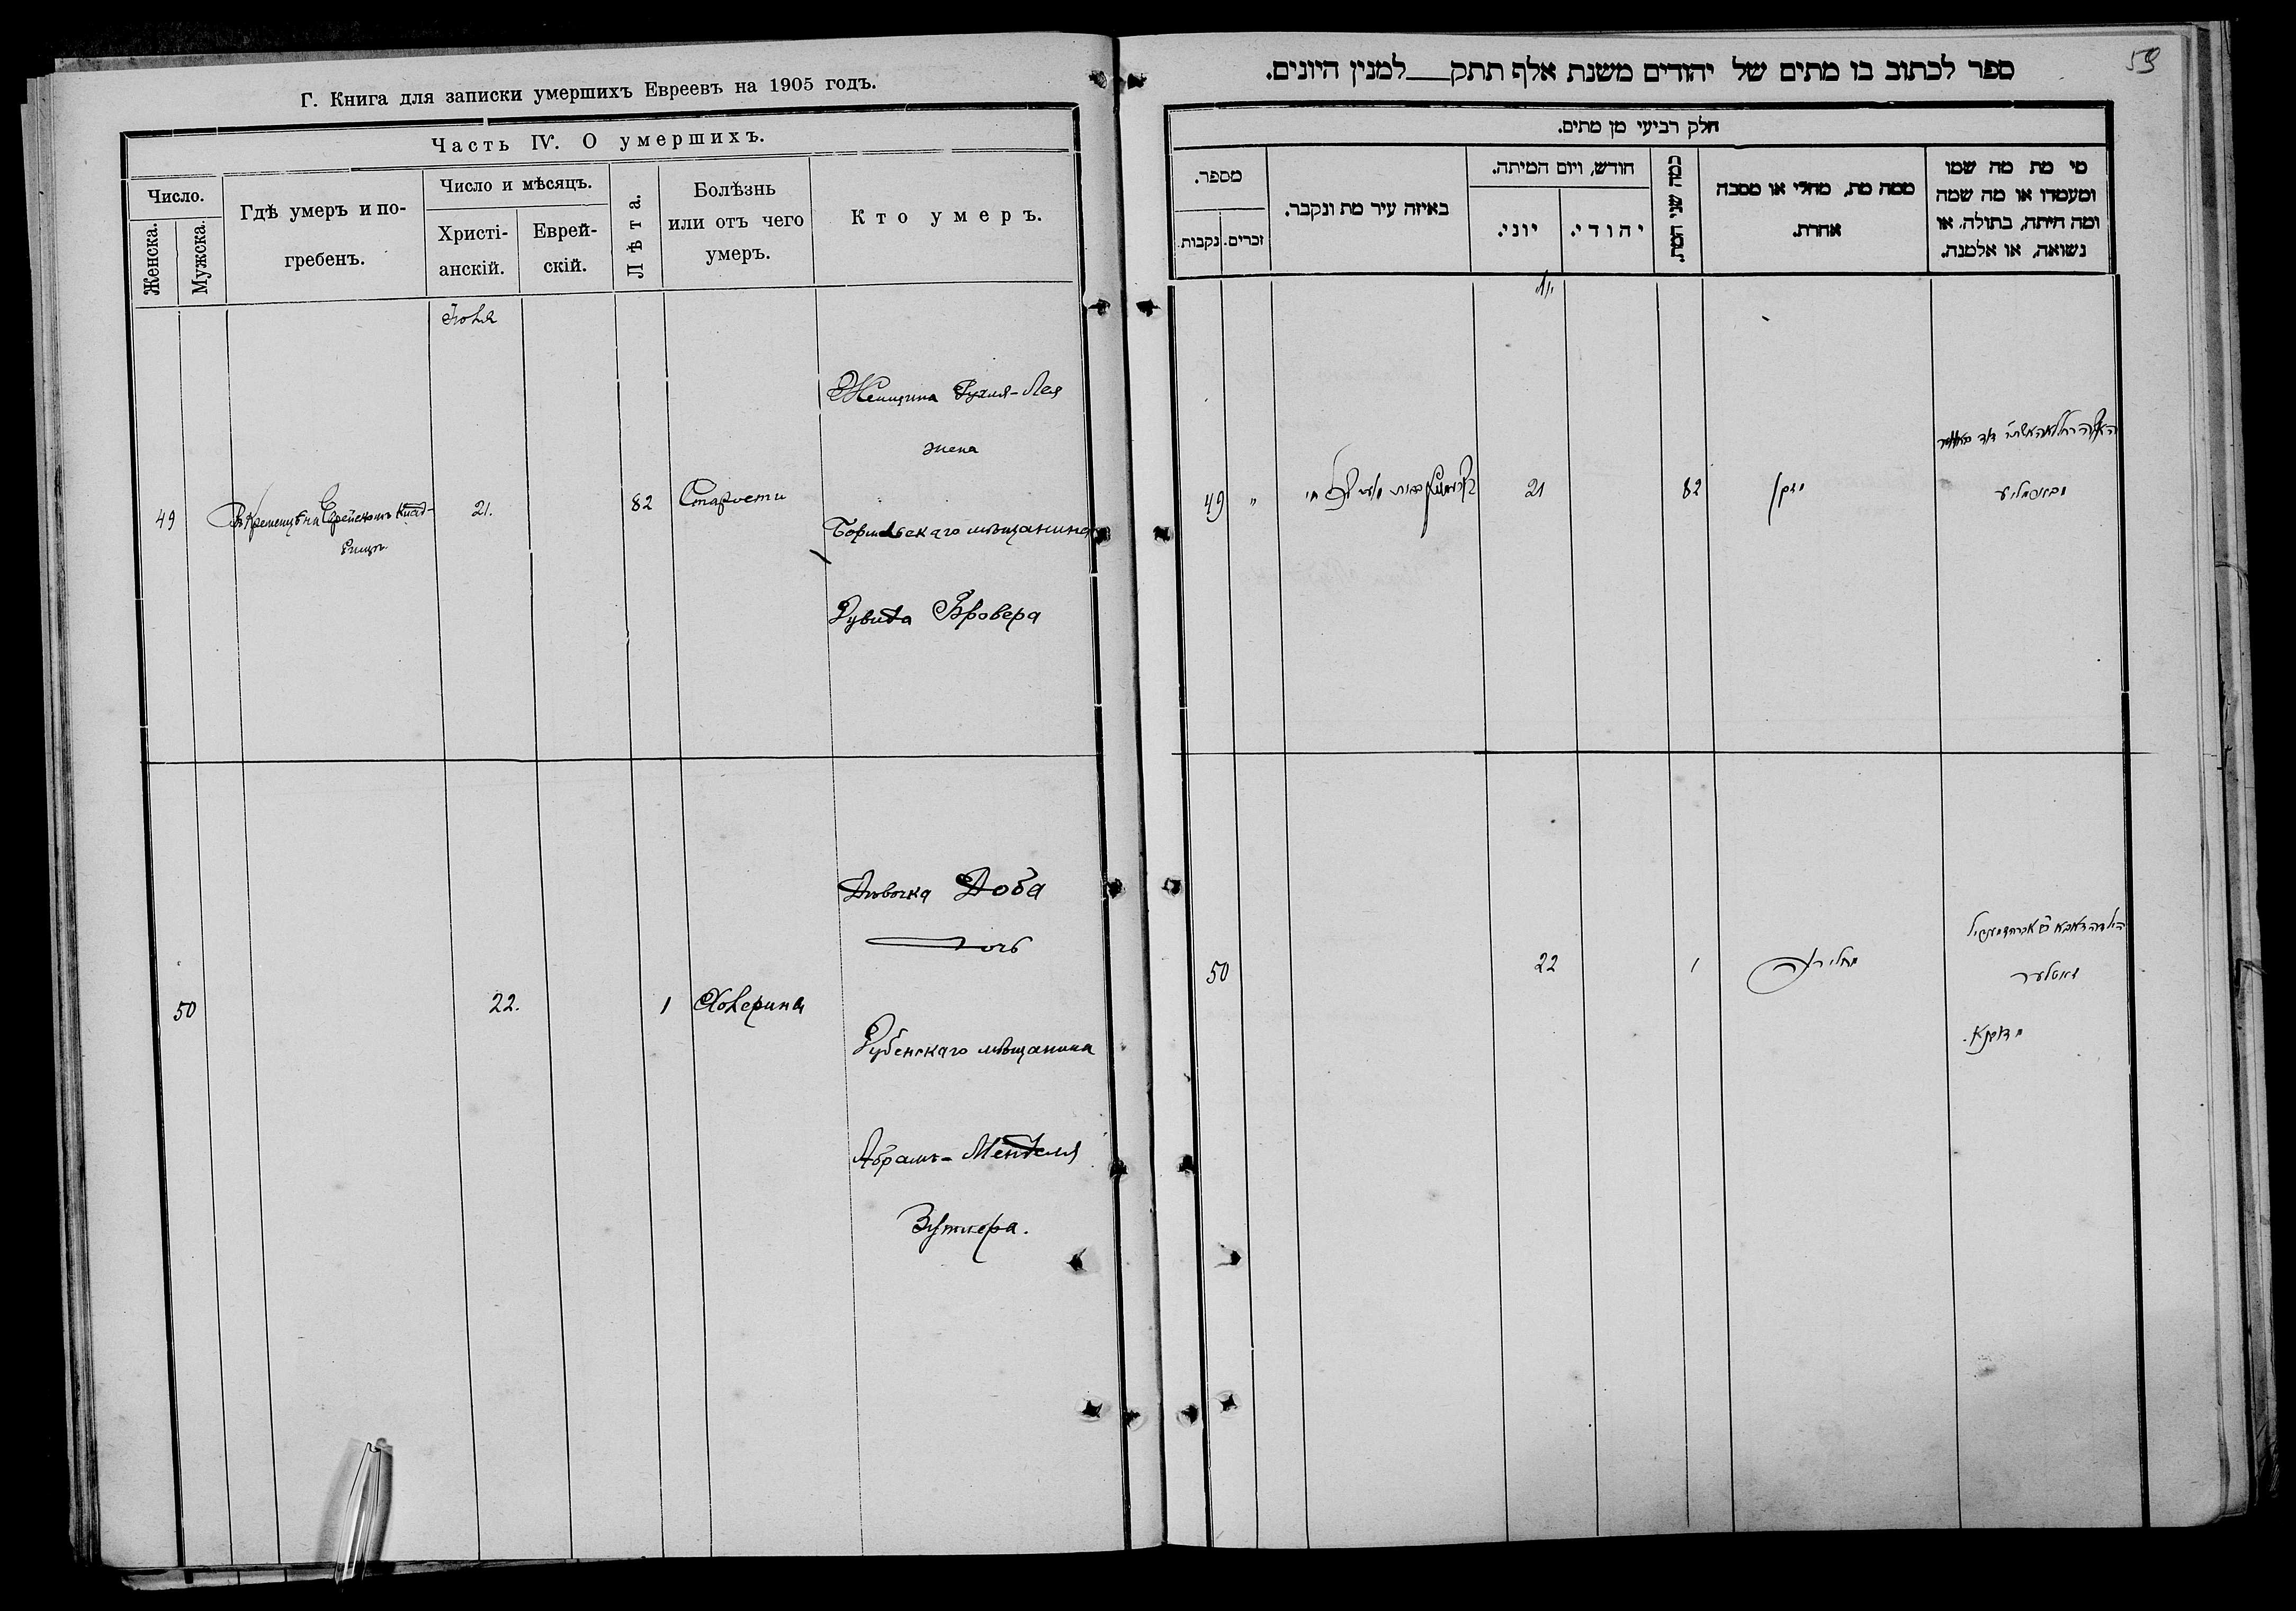 Г. Книга для записки умершихъ Евреевъ на 1905 годъ.
Часть IV. О умершихъ.
Число.
Женска.
Мужска.
Гдѣ умеръ и по-
гребенъ.
Число и мѣсяцъ.
Христі-
анскій.
Еврей-
скій.
Лѣта.
Болѣзнь
или отъ чего
умеръ.
Кто умеръ.
Іюня
49
Въ Кременцѣ на Еврейскомъ клад-
бищѣ
21.
82
Старости
Женщина Рухля-Лея
жена
мѣщанина
Бровера
50
22.
1
Холерина
Дѣвочка Доба
дочь
Дубенскаго мѣщанина
Абрамъ-Менделя
59
ספר לכתוב בו מתים של יהודים משנת אלף תתק__למנין היונים.
חלק רביעי מן מתים.
מספר.
נקבות.
זכרים.
באיזה עיר מת ונקבר.
חודש, ויום המיתה.
יוני.
יהודי.
כמה שני המת.
ממה מת, מחלי או מסבה
אחרת.
מי מת מה שמו
ומעמדו או מה שמה
ומה היתה, בתולה, או
נשואה, או אלמנה.
49
"
21
82
50
22
1